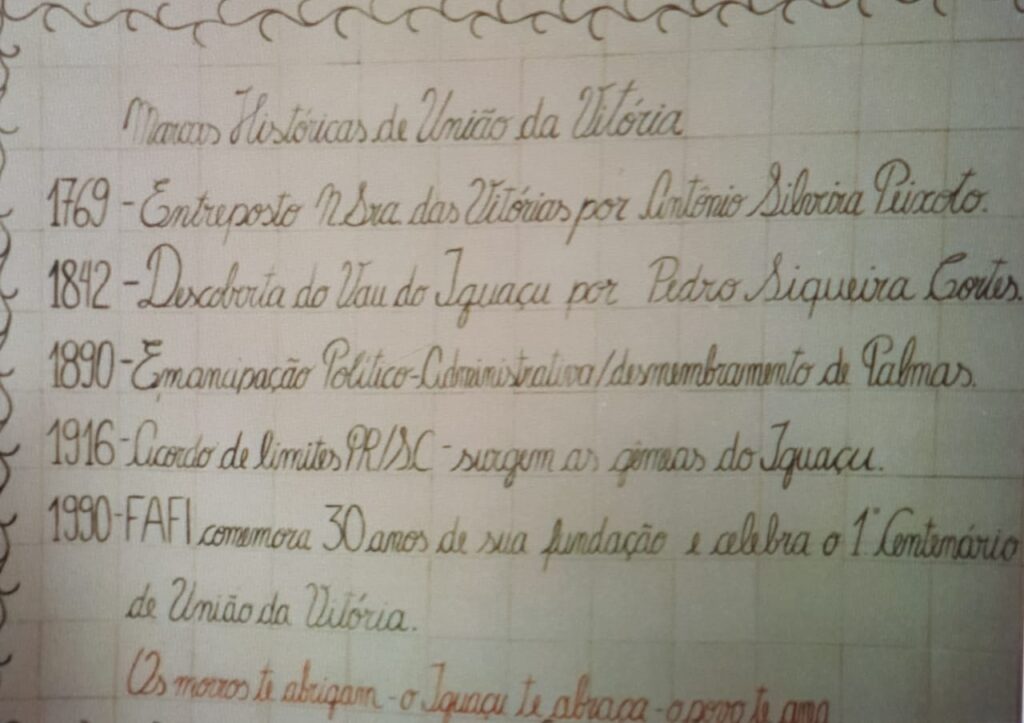 Marcas Históricas de União da Vitória
1769 - Entreposto N Sra. das Vitórias por Antônio Silveira Peixoto.
1842 - Descoberta do Vau do Iguaçu por Pedro Siqueira Cortes.
1890 - Emancipação Político-Administrativa/desmembramento de Palmas.
1916 - Acordo de limites PR/SC - surgem as gêmeas do Iguaçu.
1990 - FAFI comemora 30 anos de sua fundação e celebra o 1º Centenário
de União da Vitória.
Os morros te abrigam - o Iguaçu te abraça - o povo te ama